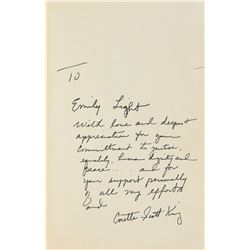 TO
Emily Light
With love and deepest
appreciation for your
committment to justice,
equality, human dignity and
peace.... and for
your support personally
of all my efforts
and
Coretta Scott King